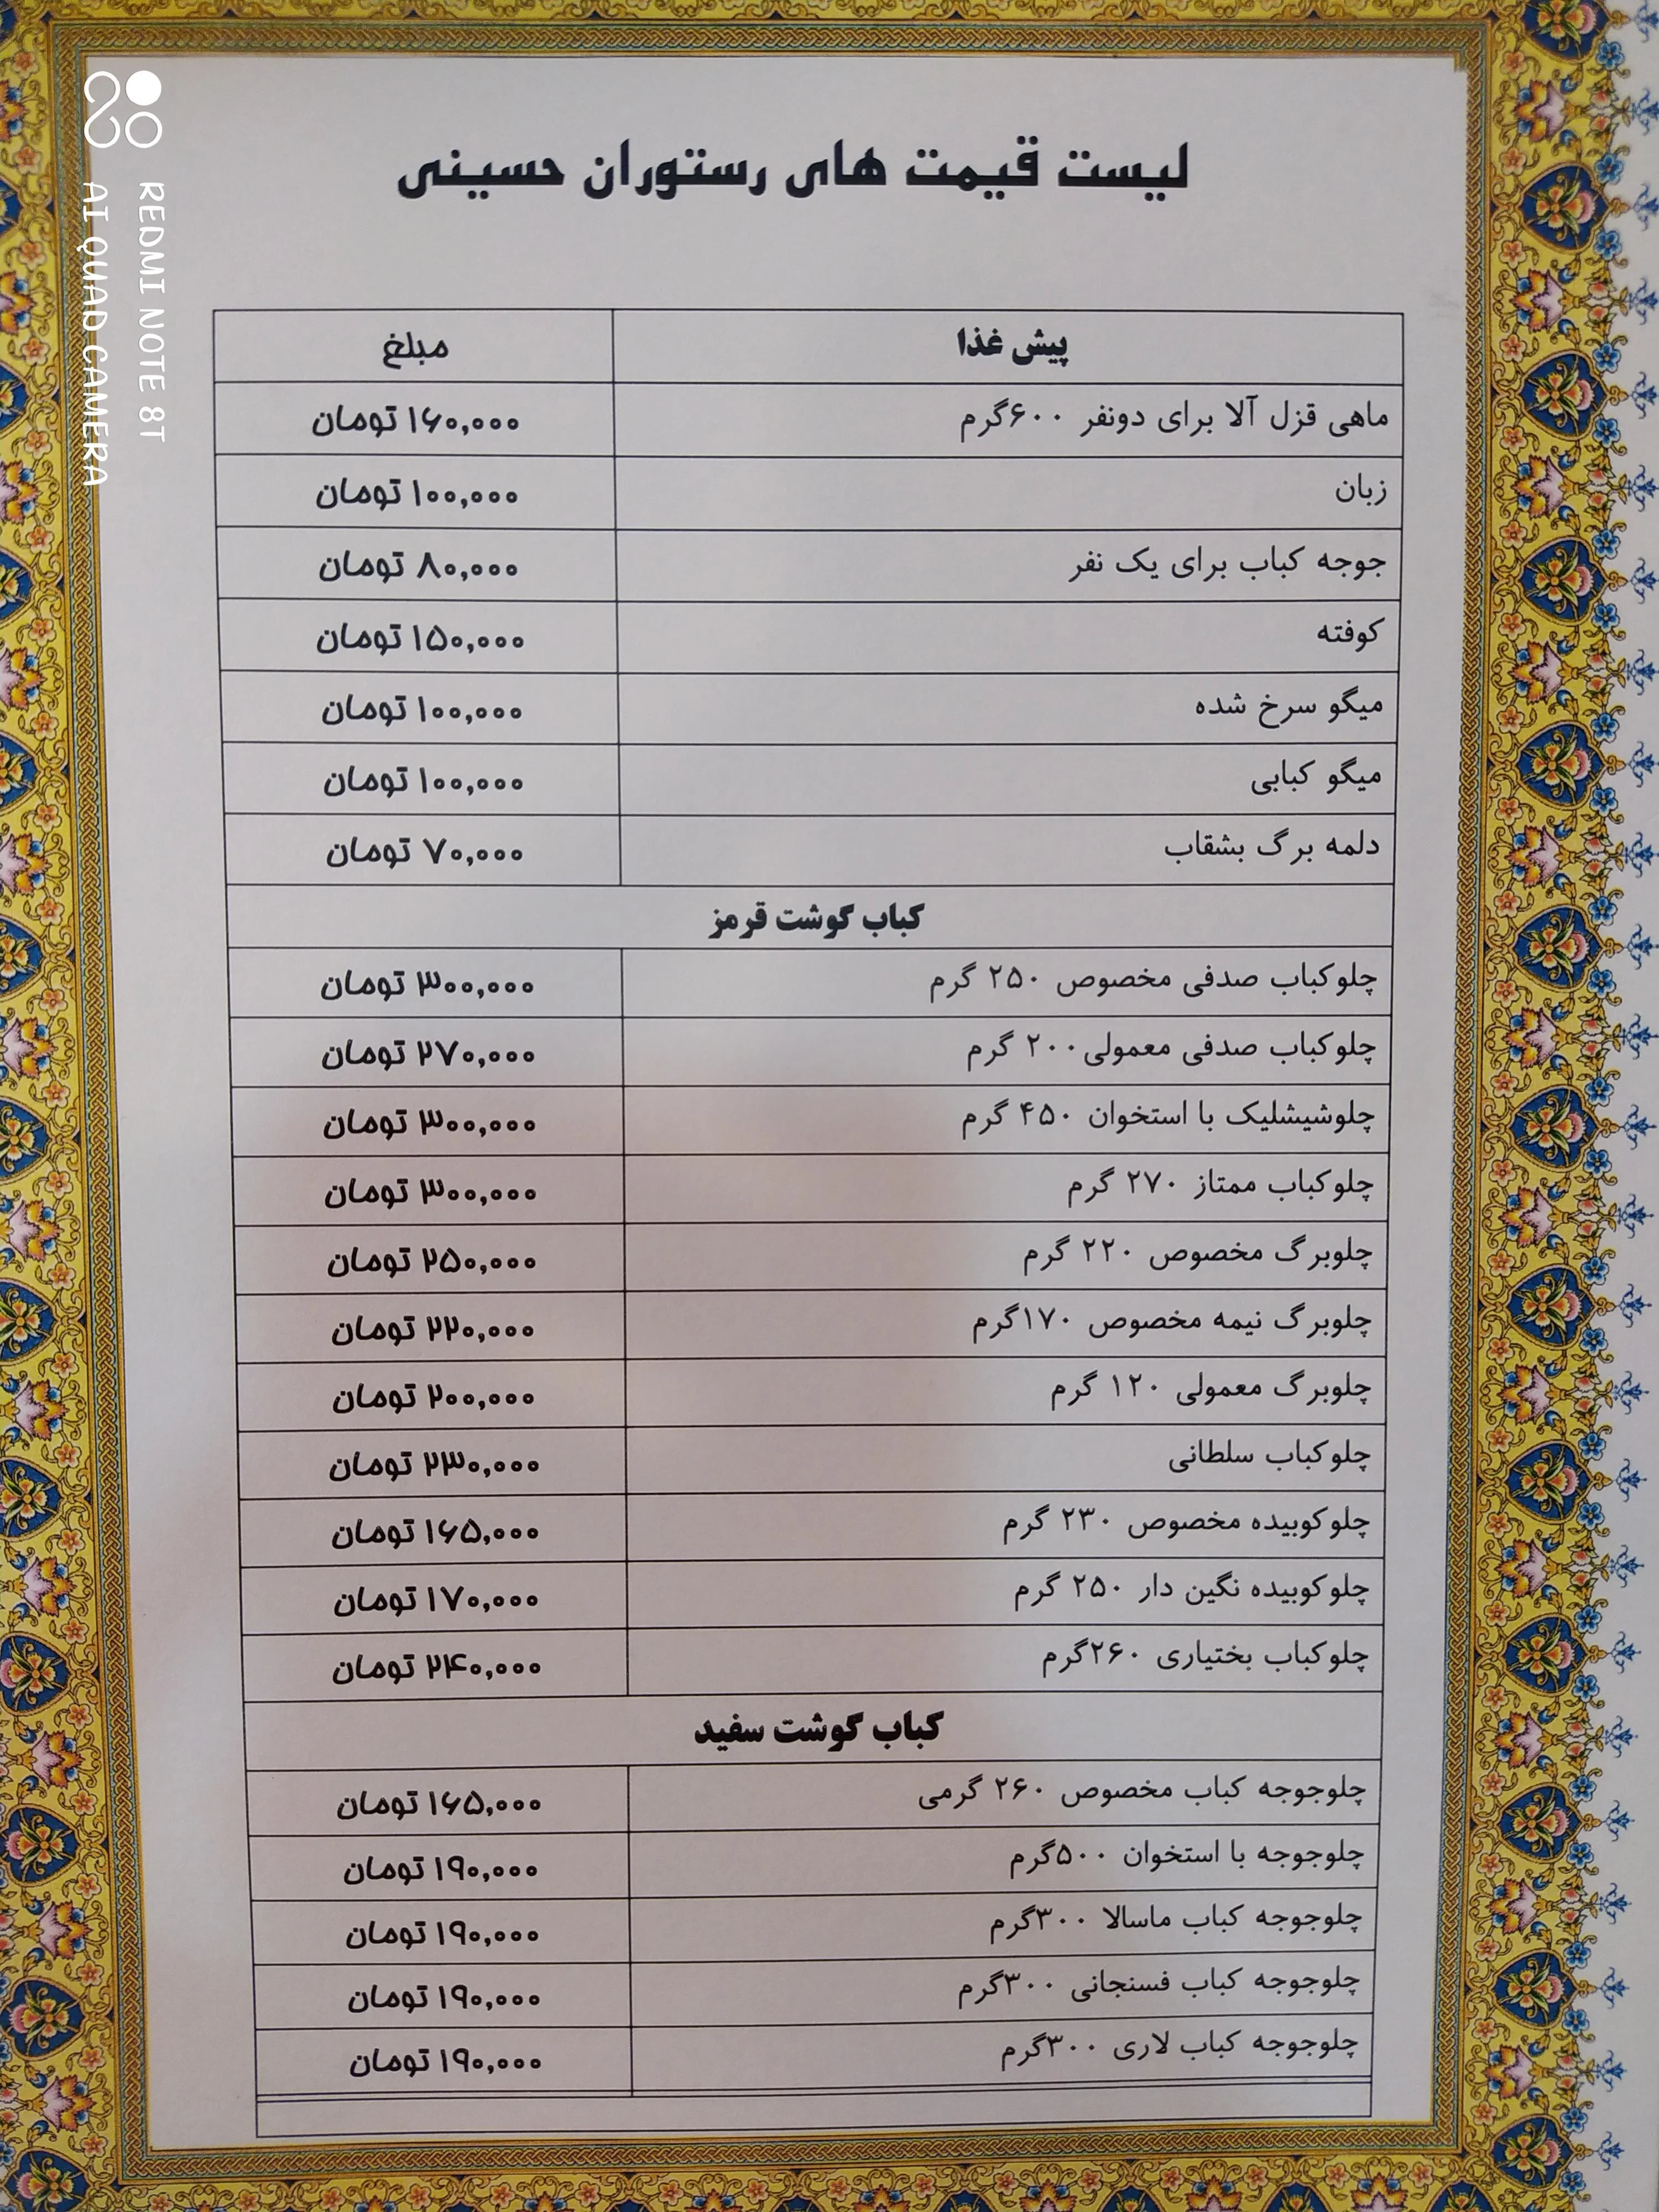 لیست قیمت های رستوران حسینی
پیش غذا مبلغ
ماهی قزل آلا برای دونفر ۶۰۰گرم ۱۶۰,۰۰۰ تومان
زبان ۱۰۰,۰۰۰ تومان
جوجه کباب برای یک نفر ۸۰,۰۰۰ تومان
کوفته ۱۵۰,۰۰۰ تومان
میگو سرخ شده ۱۰۰,۰۰۰ تومان
میگو کبابی ۱۰۰,۰۰۰ تومان
دلمه برگ بشقاب ۷۰,۰۰۰ تومان
کباب گوشت قرمز
چلوکباب صدفی مخصوص ۲۵۰ گرم ۳۰۰,۰۰۰ تومان
چلوکباب صدفی معمولی۲۰۰ گرم ۲۷۰,۰۰۰ تومان
چلوشیشلیک با استخوان ۴۵۰ گرم ۳۰۰,۰۰۰ تومان
چلوکباب ممتاز ۲۷۰ گرم ۳۰۰,۰۰۰ تومان
چلوبرگ مخصوص ۲۲۰ گرم ۲۵۰,۰۰۰ تومان
چلوبرگ نیمه مخصوص ۱۷۰گرم ۲۲۰,۰۰۰ تومان
چلوبرگ معمولی ۱۲۰ گرم ۲۰۰,۰۰۰ تومان
چلوکباب سلطانی ۲۳۰,۰۰۰ تومان
چلوکوبیده مخصوص ۲۳۰ گرم ۱۶۵,۰۰۰ تومان
چلوکوبیده نگین دار ۲۵۰ گرم ۱۷۰,۰۰۰ تومان
چلوکباب بختیاری ۲۶۰گرم ۲۴۰,۰۰۰ تومان
کباب گوشت سفید
چلوجوجه کباب مخصوص ۲۶۰ گرمی ۱۶۵,۰۰۰ تومان
چلوجوجه با استخوان ۵۰۰گرم ۱۹۰,۰۰۰ تومان
چلوجوجه کباب ماسالا ۳۰۰گرم ۱۹۰,۰۰۰ تومان
چلوجوجه کباب فسنجانی ۳۰۰گرم ۱۹۰,۰۰۰ تومان
چلوجوجه کباب لاری ۳۰۰گرم ۱۹۰,۰۰۰ تومان
REDMI NOTE 8T
AI QUAD CAMERA